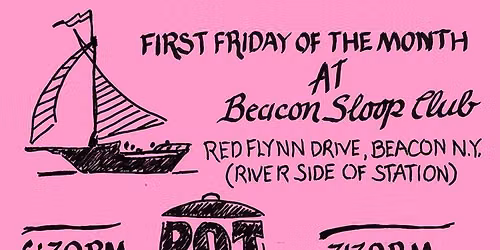 FIRST FRIDAY OF THE MONTH
AT
Beacon Sloop Club
RED FLYNN DRIVE, BEACON N.Y.
(RIVER SIDE OF STATION)
POT